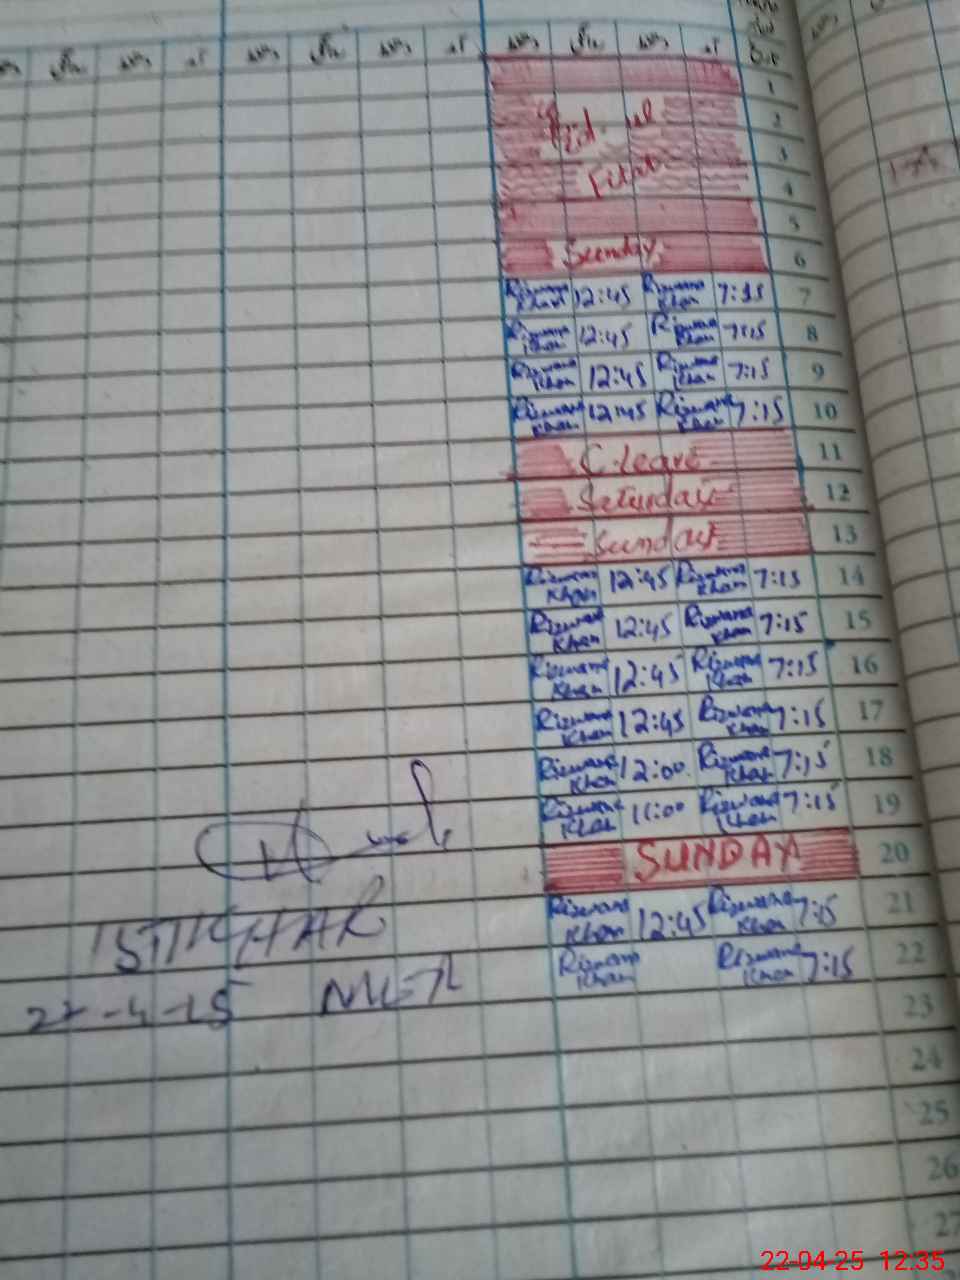 1
2
Eid-ul
3
Fitar
4
5
Sunday
6
Rizwana Khan 12:45 Rizwana Khan 7:15 7
Rizwana Khan 12:45 Rizwana Khan 7:15 8
Rizwana Khan 12:45 Rizwana Khan 7:15 9
Rizwana Khan 12:45 Rizwana Khan 7:15 10
C.leave 11
Saturday 12
Sunday 13
Rizwana Khan 12:45 Rizwana Khan 7:15 14
Rizwana Khan 12:45 Rizwana Khan 7:15 15
Rizwana Khan 12:45 Rizwana Khan 7:15 16
Rizwana Khan 12:45 Rizwana Khan 7:15 17
Rizwana Khan 12:00 Rizwana Khan 7:15 18
Rizwana Khan 11:00 Rizwana Khan 7:15 19
SUNDAY 20
Rizwana Khan 12:45 Rizwana Khan 7:15 21
Rizwana Khan Rizwana Khan 7:15 22
23
24
25
26
27
22-04-25 12:35